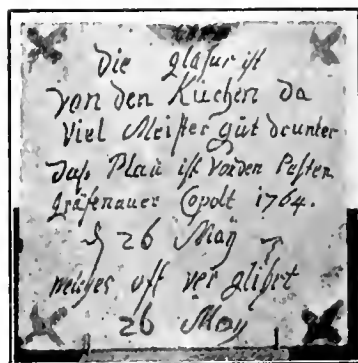 Die glasur ist
von den Küchen da
Viel Meister güt drunter
Das Plaü ist von den Pasten
gräfenauer Copolt 1764.
26 Maÿ
welches oft ver glihrt
26 Maÿ